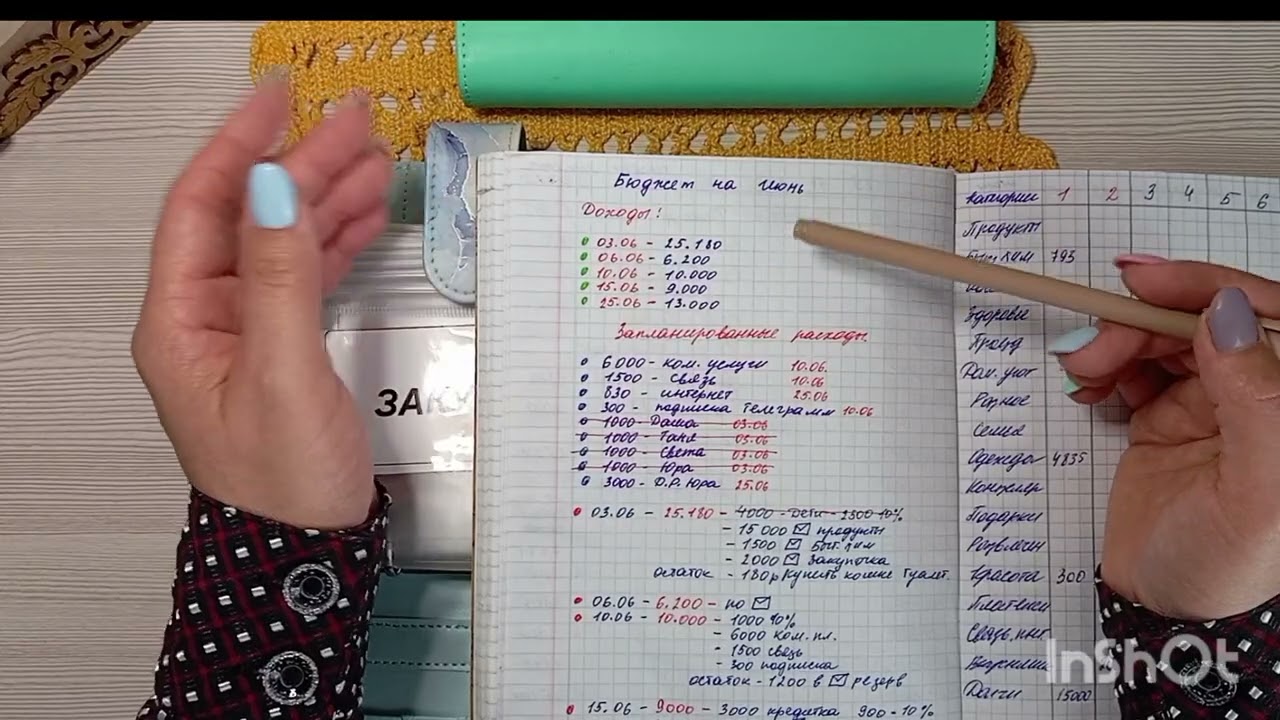 Бюджет на июнь
Доходы!
03.06 - 25.180
06.06 - 6.200
10.06 - 10.000
15.06 - 9.000
25.06 - 13.000
Запланированные расходы
6000 - ком. услуги 10.06.
1500 - связь 10.06
830 - интернет 25.06
300 - подписка Телеграмм 10.06
1000 - Даша 03.06
1000 - Таня 03.06
1000 - Света 03.06
1000 - Юра 03.06
3000 - Д.Р. Юра 25.06
03.06 - 25.180 - 4000 - дети - 2300 10%
- 15 000 продукты
- 1500 Быт. хим
- 2000 Закупочка
остаток - 180р Купить кошке туалет.
06.06 - 6.200 - по
10.06 - 10.000 - 1000 10%
- 6000 ком. пл.
- 1500 связь
- 300 подписка
остаток - 1200 в резерв
15.06 - 9000 - 3000 кредитка 900 - 10%
Категории 1 2 3 4 5 6
Продукт
Быт. хим 795
Здоровье
Проезд
Дом. уют
Разное
Семья
Одежда 4835
Канцеляр
Подарки
Развлечен
Красота 300
Связь, инт
Долги 15000
ЗАКУ
InShOt